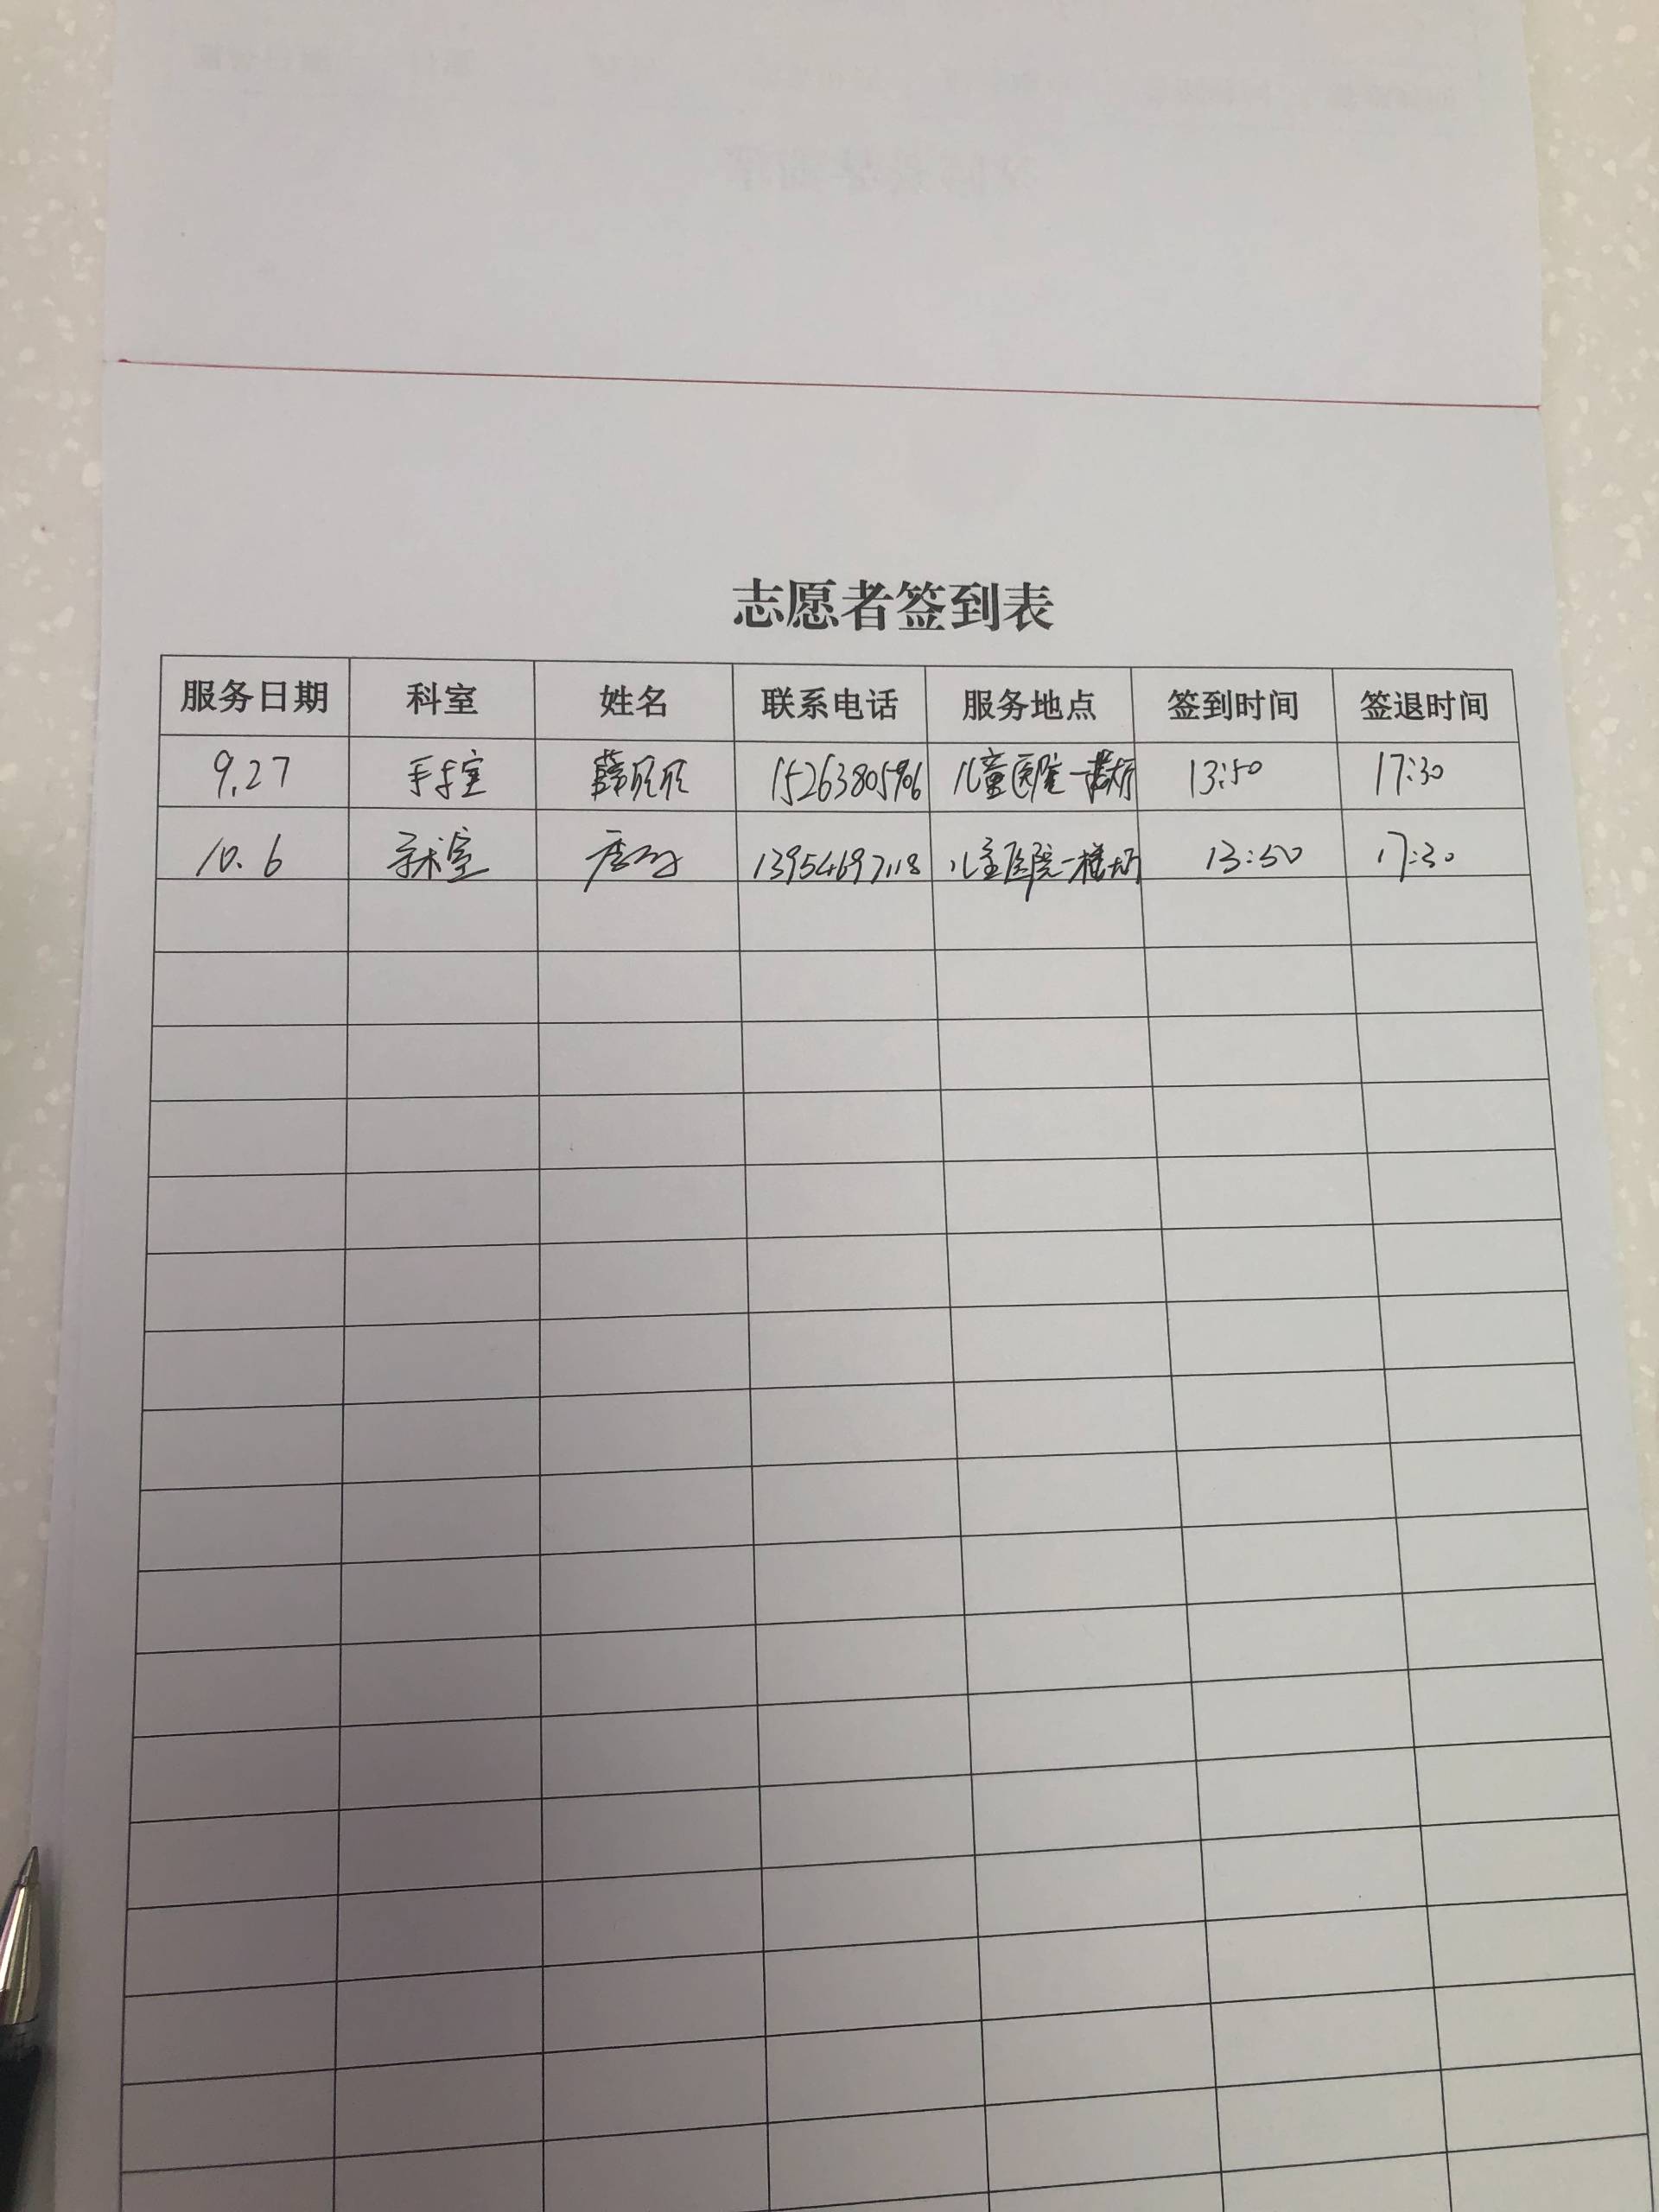 志愿者签到表
服务日期 科室 姓名 联系电话 服务地点 签到时间 签退时间
9.27 手术室 薛欣欣 儿童医院一楼大厅 13:50 17:30
10.6 手术室 13954697118 儿童医院一楼大厅 13:50 17:30